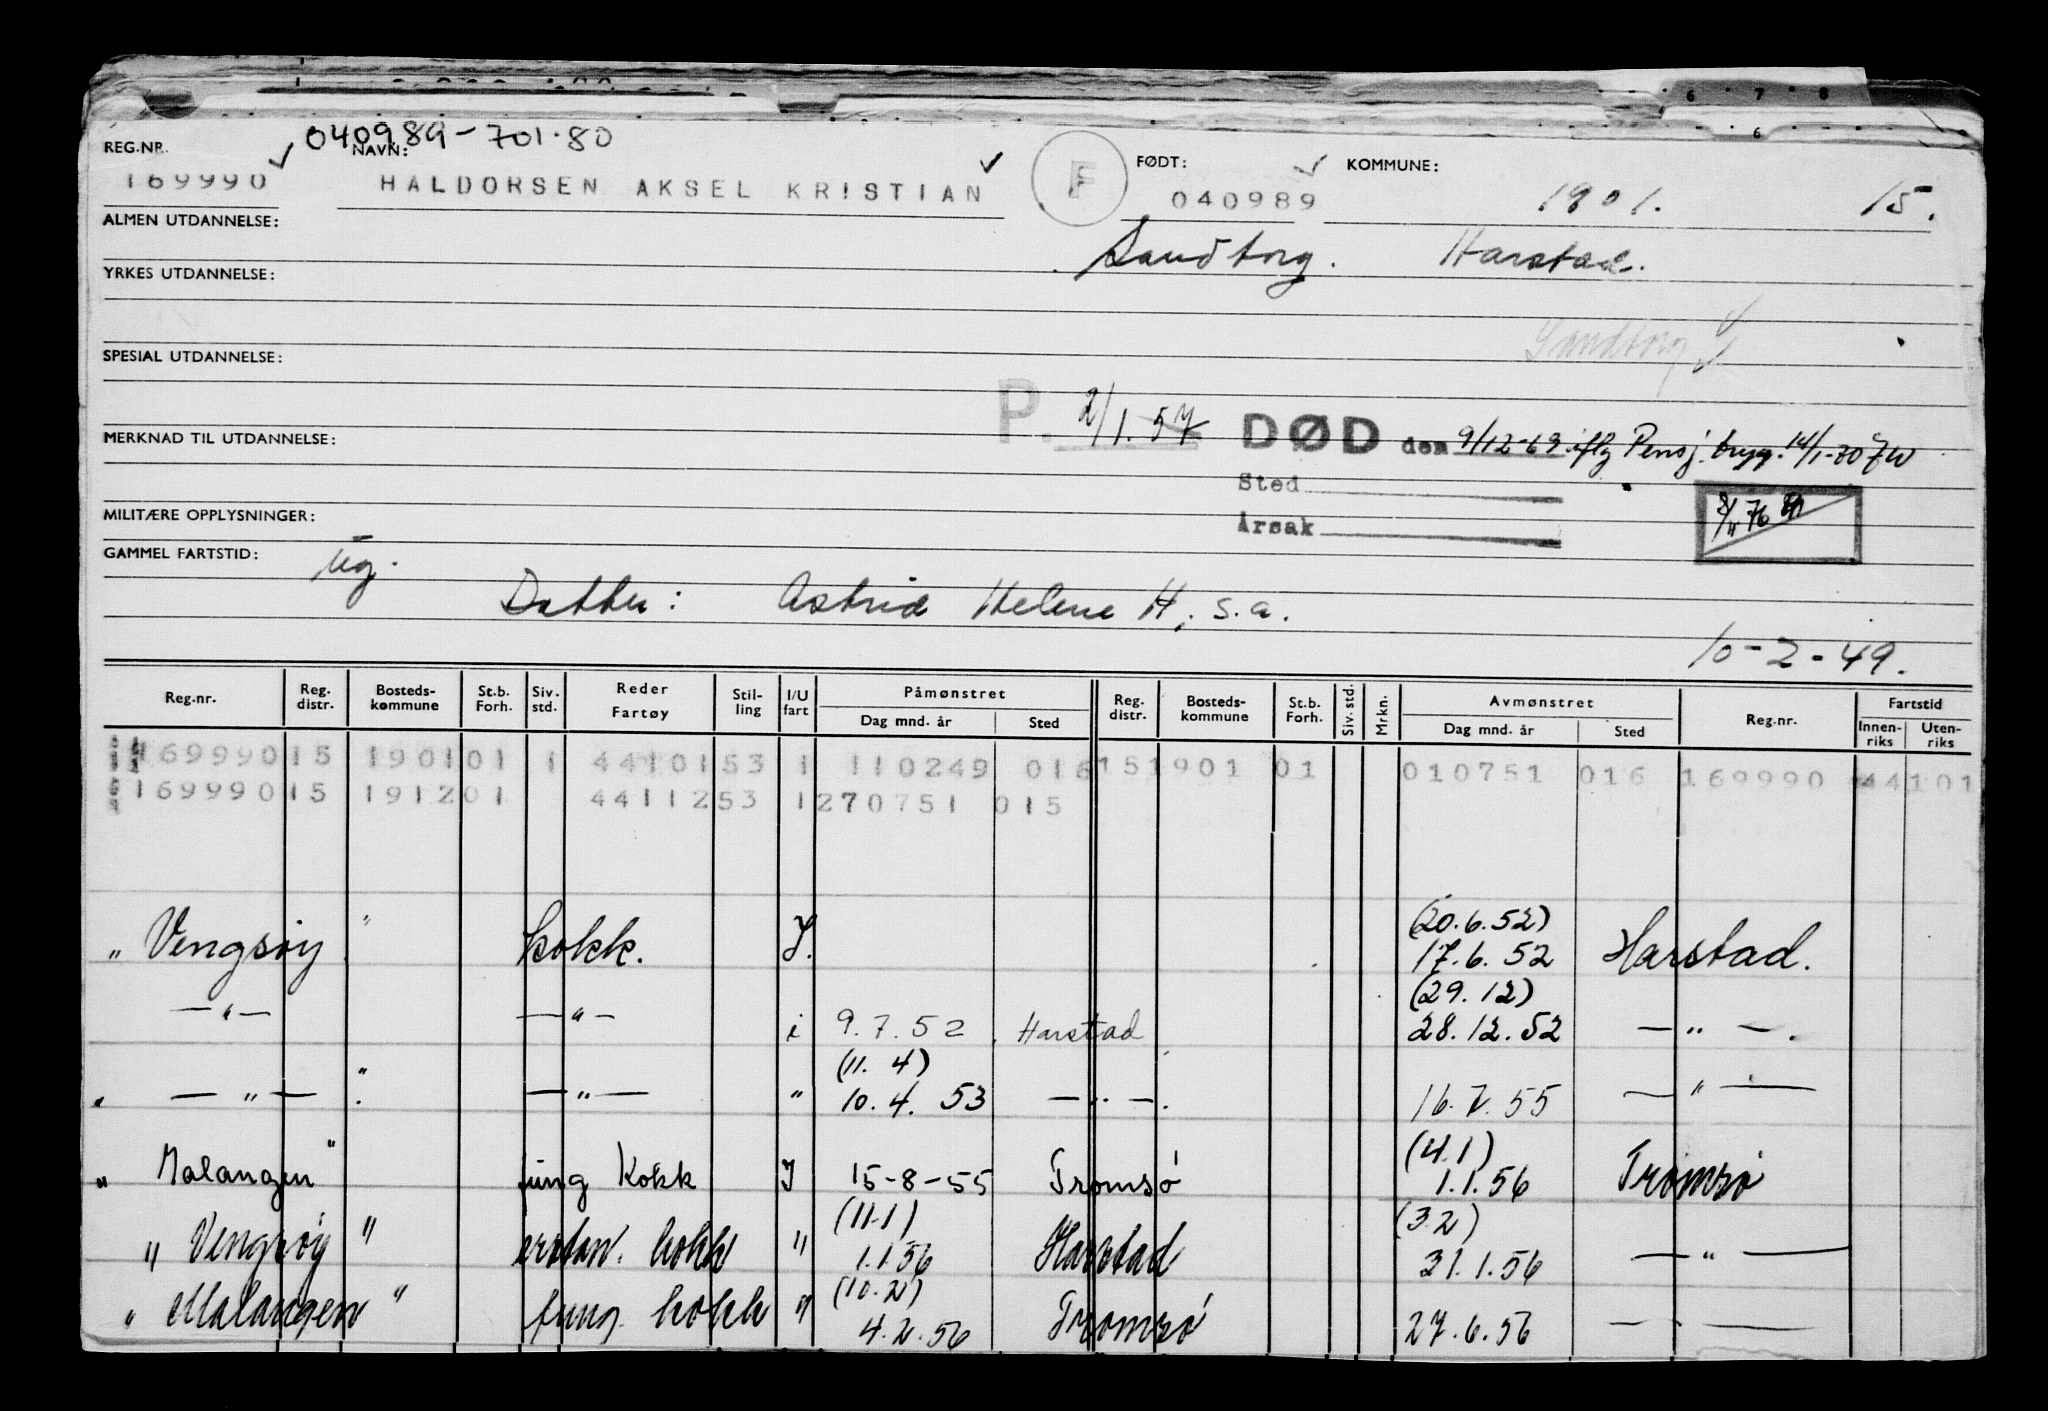 040989-701.80
REG.NR. NAVN: FØDT: KOMMUNE:
169990 HALDORSEN AKSEL KRISTIAN F 040989 1901. 15.
ALMEN UTDANNELSE:
Sandtorg. Harstad.
YRKES UTDANNELSE:
Sandtorg
SPESIAL UTDANNELSE:
P. 2/1.57 DØD den 9/12-69 iflg Pensj. tryg. 14/1-70
MERKNAD TIL UTDANNELSE:
Sted
MILITÆRE OPPLYSNINGER:
Årsak
GAMMEL FARTSTID: ug.
Datter: Astrid Helene H, s.a.
10-2-49.
Reg.nr. Reg. distr. Bosteds-kommune St.b. Forh. Siv. std. Reder Fartøy Stil-ling I/U fart Påmønstret Reg. distr. Bosteds-kommune St.b. Forh. Siv. std. Mrkn. Avmønstret Reg.nr. Fartstid
Dag mnd. år Sted Dag mnd. år Sted Innen-riks Uten-riks
169990 15 1901 01 1 4410153 1 110249 016 15 1901 01 010751 016 169990 44101
169990 15 1912 01 4411253 1 270751 015
(20.6.52)
" Vengsøy " kokk. I. 17.6.52 Harstad.
(29.12)
—"— —"— i 9.7.52 Harstad 28.12.52 —"—.
(11.4)
—"— " —"— " 10.4.53 —"—. 16.7.55 —"—
(4.1)
" Malangen " jung Kokk I 15-8-55 Tromsø 1.1.56 Tromsø
(11.1) (3.2)
" Vengsøy " kokk " 1.1.56 Harstad 31.1.56 —"—
(10.2)
" Malangen " jung. kokk " 4.2.56 Tromsø 27.6.56 —"—